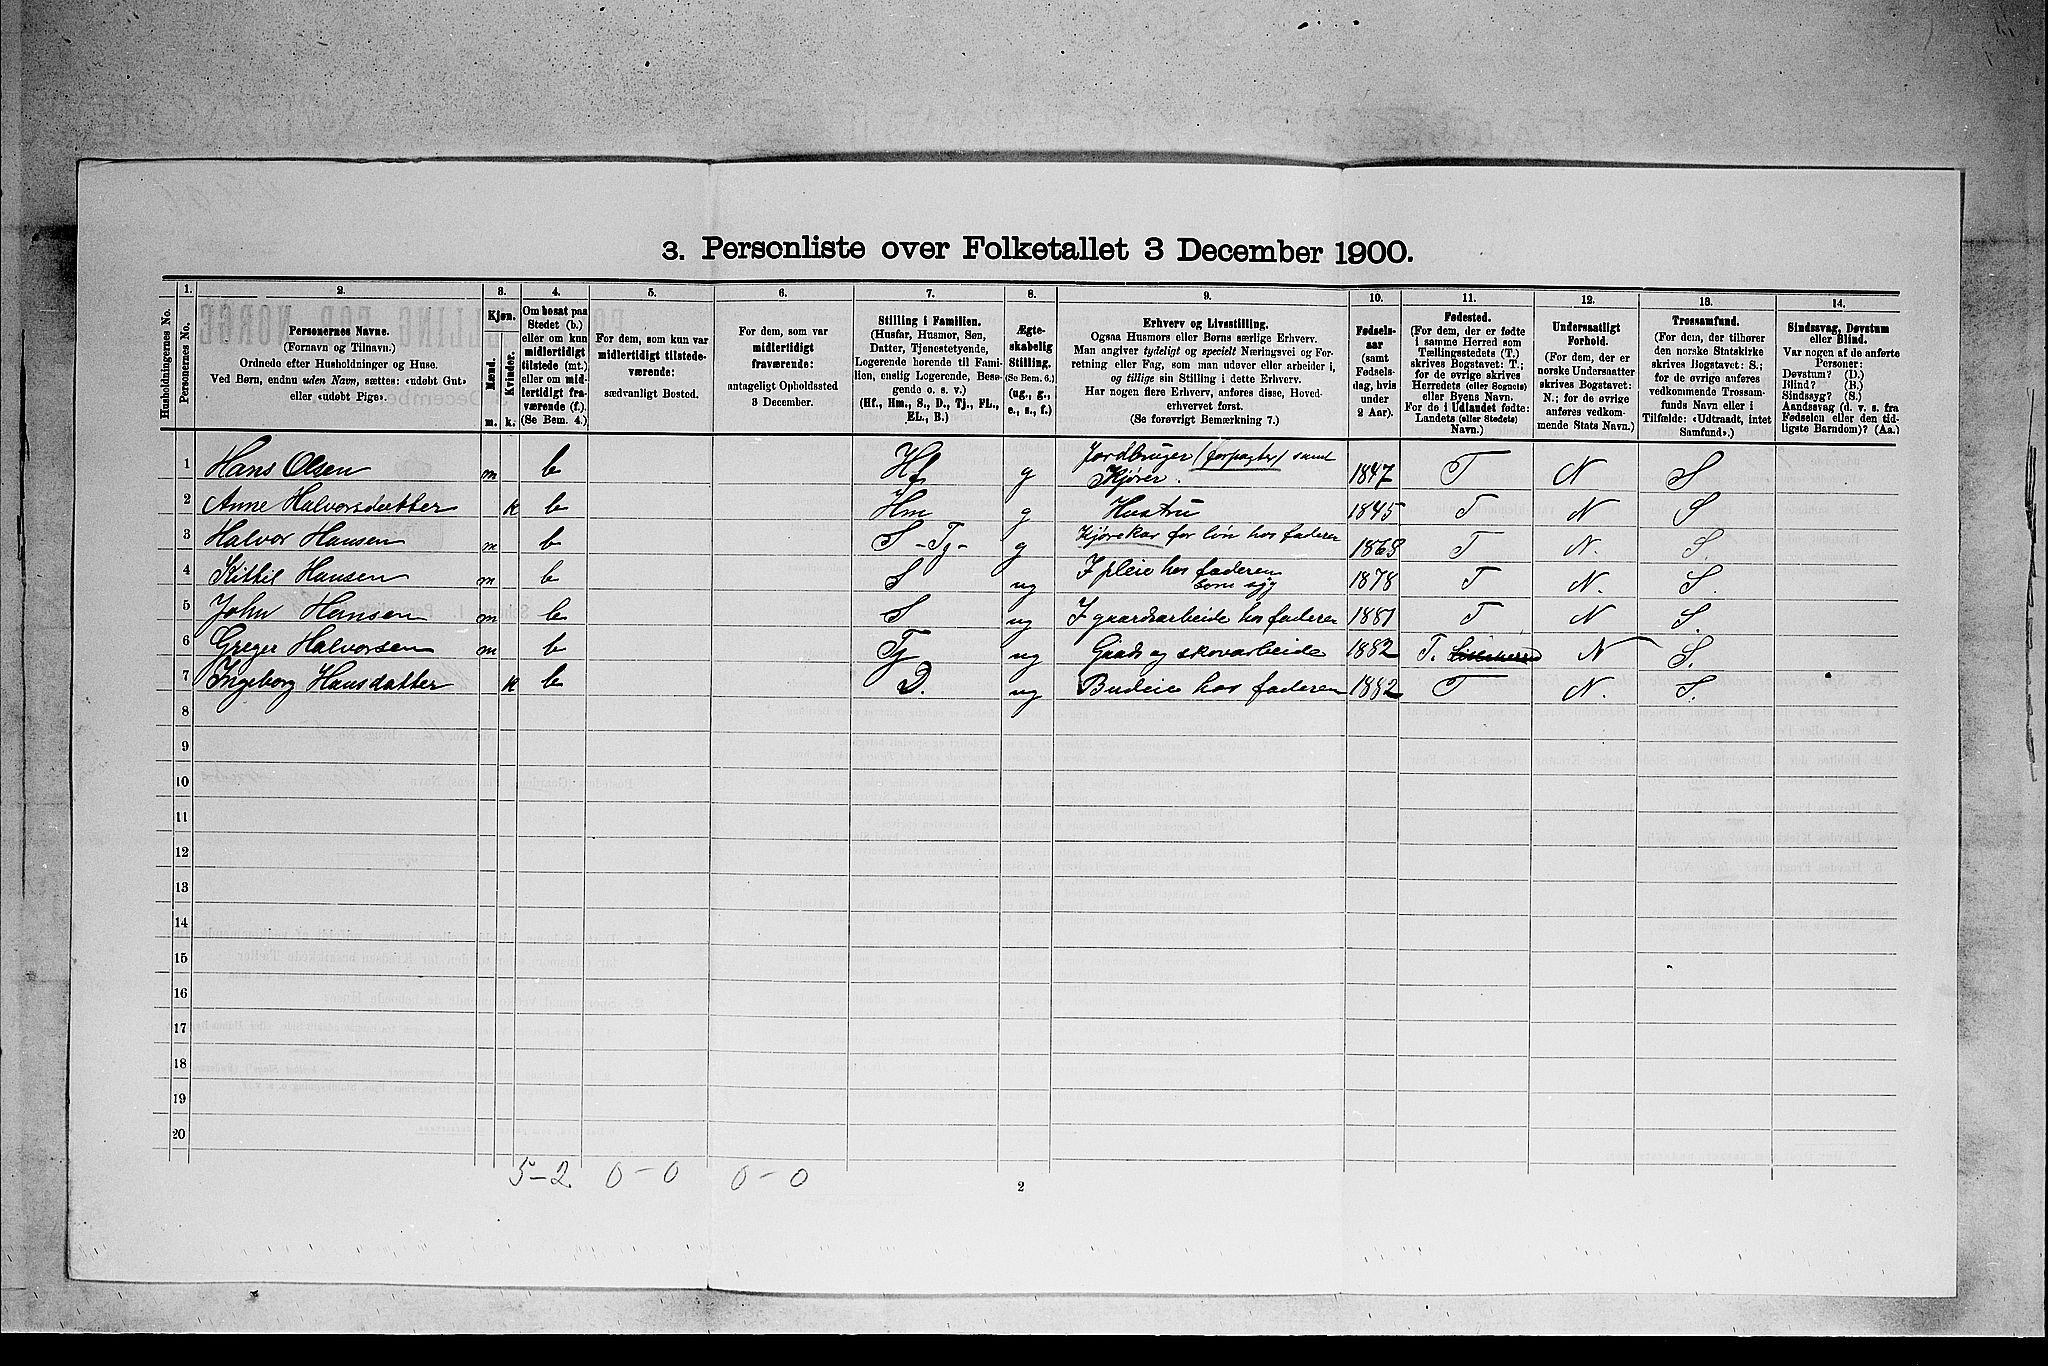 3. Personliste over Folketallet 3 December 1900.
1. 2. 3. 4. 5. 6. 7. 8. 9. 10. 11. 12. 13. 14.
Husholdningernes No.
Personernes No.
Personernes Navne.
(Fornavn og Tilnavn.)
Ordnede efter Husholdninger og Huse.
Ved Børn, endnu uden Navn, sættes: «udøbt Gut»
eller «udøbt Pige».
Kjøn.
Mænd.
Kvinder.
m. k.
Om bosat paa
Stedet (b.)
eller om kun
midlertidigt
tilstede (mt.)
eller om mid-
lertidigt fra-
værende (f.).
(Se Bem. 4.)
For dem, som kun var
midlertidigt tilstede-
værende:
sædvanligt Bosted.
For dem, som var
midlertidigt
fraværende:
antageligt Opholdssted
3 December.
Stilling i Familien.
(Husfar, Husmor, Søn,
Datter, Tjenestetyende,
Logerende hørende til Fami-
lien, enslig Logerende, Besø-
gende o. s. v.)
(Hf., Hm., S., D., Tj., FL.,
EL., B.)
Ægte-
skabelig
Stilling.
(Se Bem. 6.)
(ug., g.,
e., s., f.)
Erhverv og Livsstilling.
Ogsaa Husmors eller Børns særlige Erhverv.
Man angiver tydeligt og specielt Næringsvei og For-
retning eller Fag, som man udøver eller arbeider i,
og tillige sin Stilling i dette Erhverv.
Har nogen flere Erhverv, anføres disse, Hoved-
erhvervet først.
(Se forøvrigt Bemærkning 7.)
Fødsels-
aar
(samt
Fødsels-
dag, hvis
under
2 Aar).
Fødested.
(For dem, der er fødte
i samme Herred som
Tællingsstedets (T.)
skrives Bogstavet: T.;
for de øvrige skrives
Herredets (eller Sognets)
eller Byens Navn.
For de i Udlandet fødte:
Landets (eller Stedets)
Navn.)
Undersaatligt
Forhold.
(For dem, der er
norske Undersaatter
skrives Bogstavet:
N.; for de øvrige
anføres vedkom-
mende Stats Navn.)
Trossamfund.
(For dem, der tilhører
den norske Statskirke
skrives Bogstavet: S.;
for de øvrige anføres
vedkommende Trossam-
funds Navn eller i
Tilfælde: «Udtraadt, intet
Samfund».)
Sindssvag, Døvstum
eller Blind.
Var nogen af de anførte
Personer:
Døvstum? (D.)
Blind? (B.)
Sindssyg? (S.)
Aandssvag (d. v. s. fra
Fødselen eller den tid-
ligste Barndom)? (Aa.)
1 Hans Olsen m b Hf g Jordbruger (forpagter) samt
Kjører. 1847 T N S
2 Anne Halvorsdatter k b Hm g Hustru 1845 T N S
3 Halvor Hansen m b S - Tj - g Kjørekar for løn hos faderen 1868 T N. S.
4 Kittil Hansen m b S ug I pleie hos faderen
som syg 1878 T N. S.
5 John Hansen m b S ug I gaardsarbeide hos faderen 1881 T N S.
6 Greger Halvorsen m b Tj ug Gaards og skovarbeide 1882 T. N S.
7 Ingeborg Hansdatter k b D. ug Budeie hos faderen 1882 T N. S.
8
9
10
11
12
13
14
15
16
17
18
19
20
5-2 0-0 0-0
2